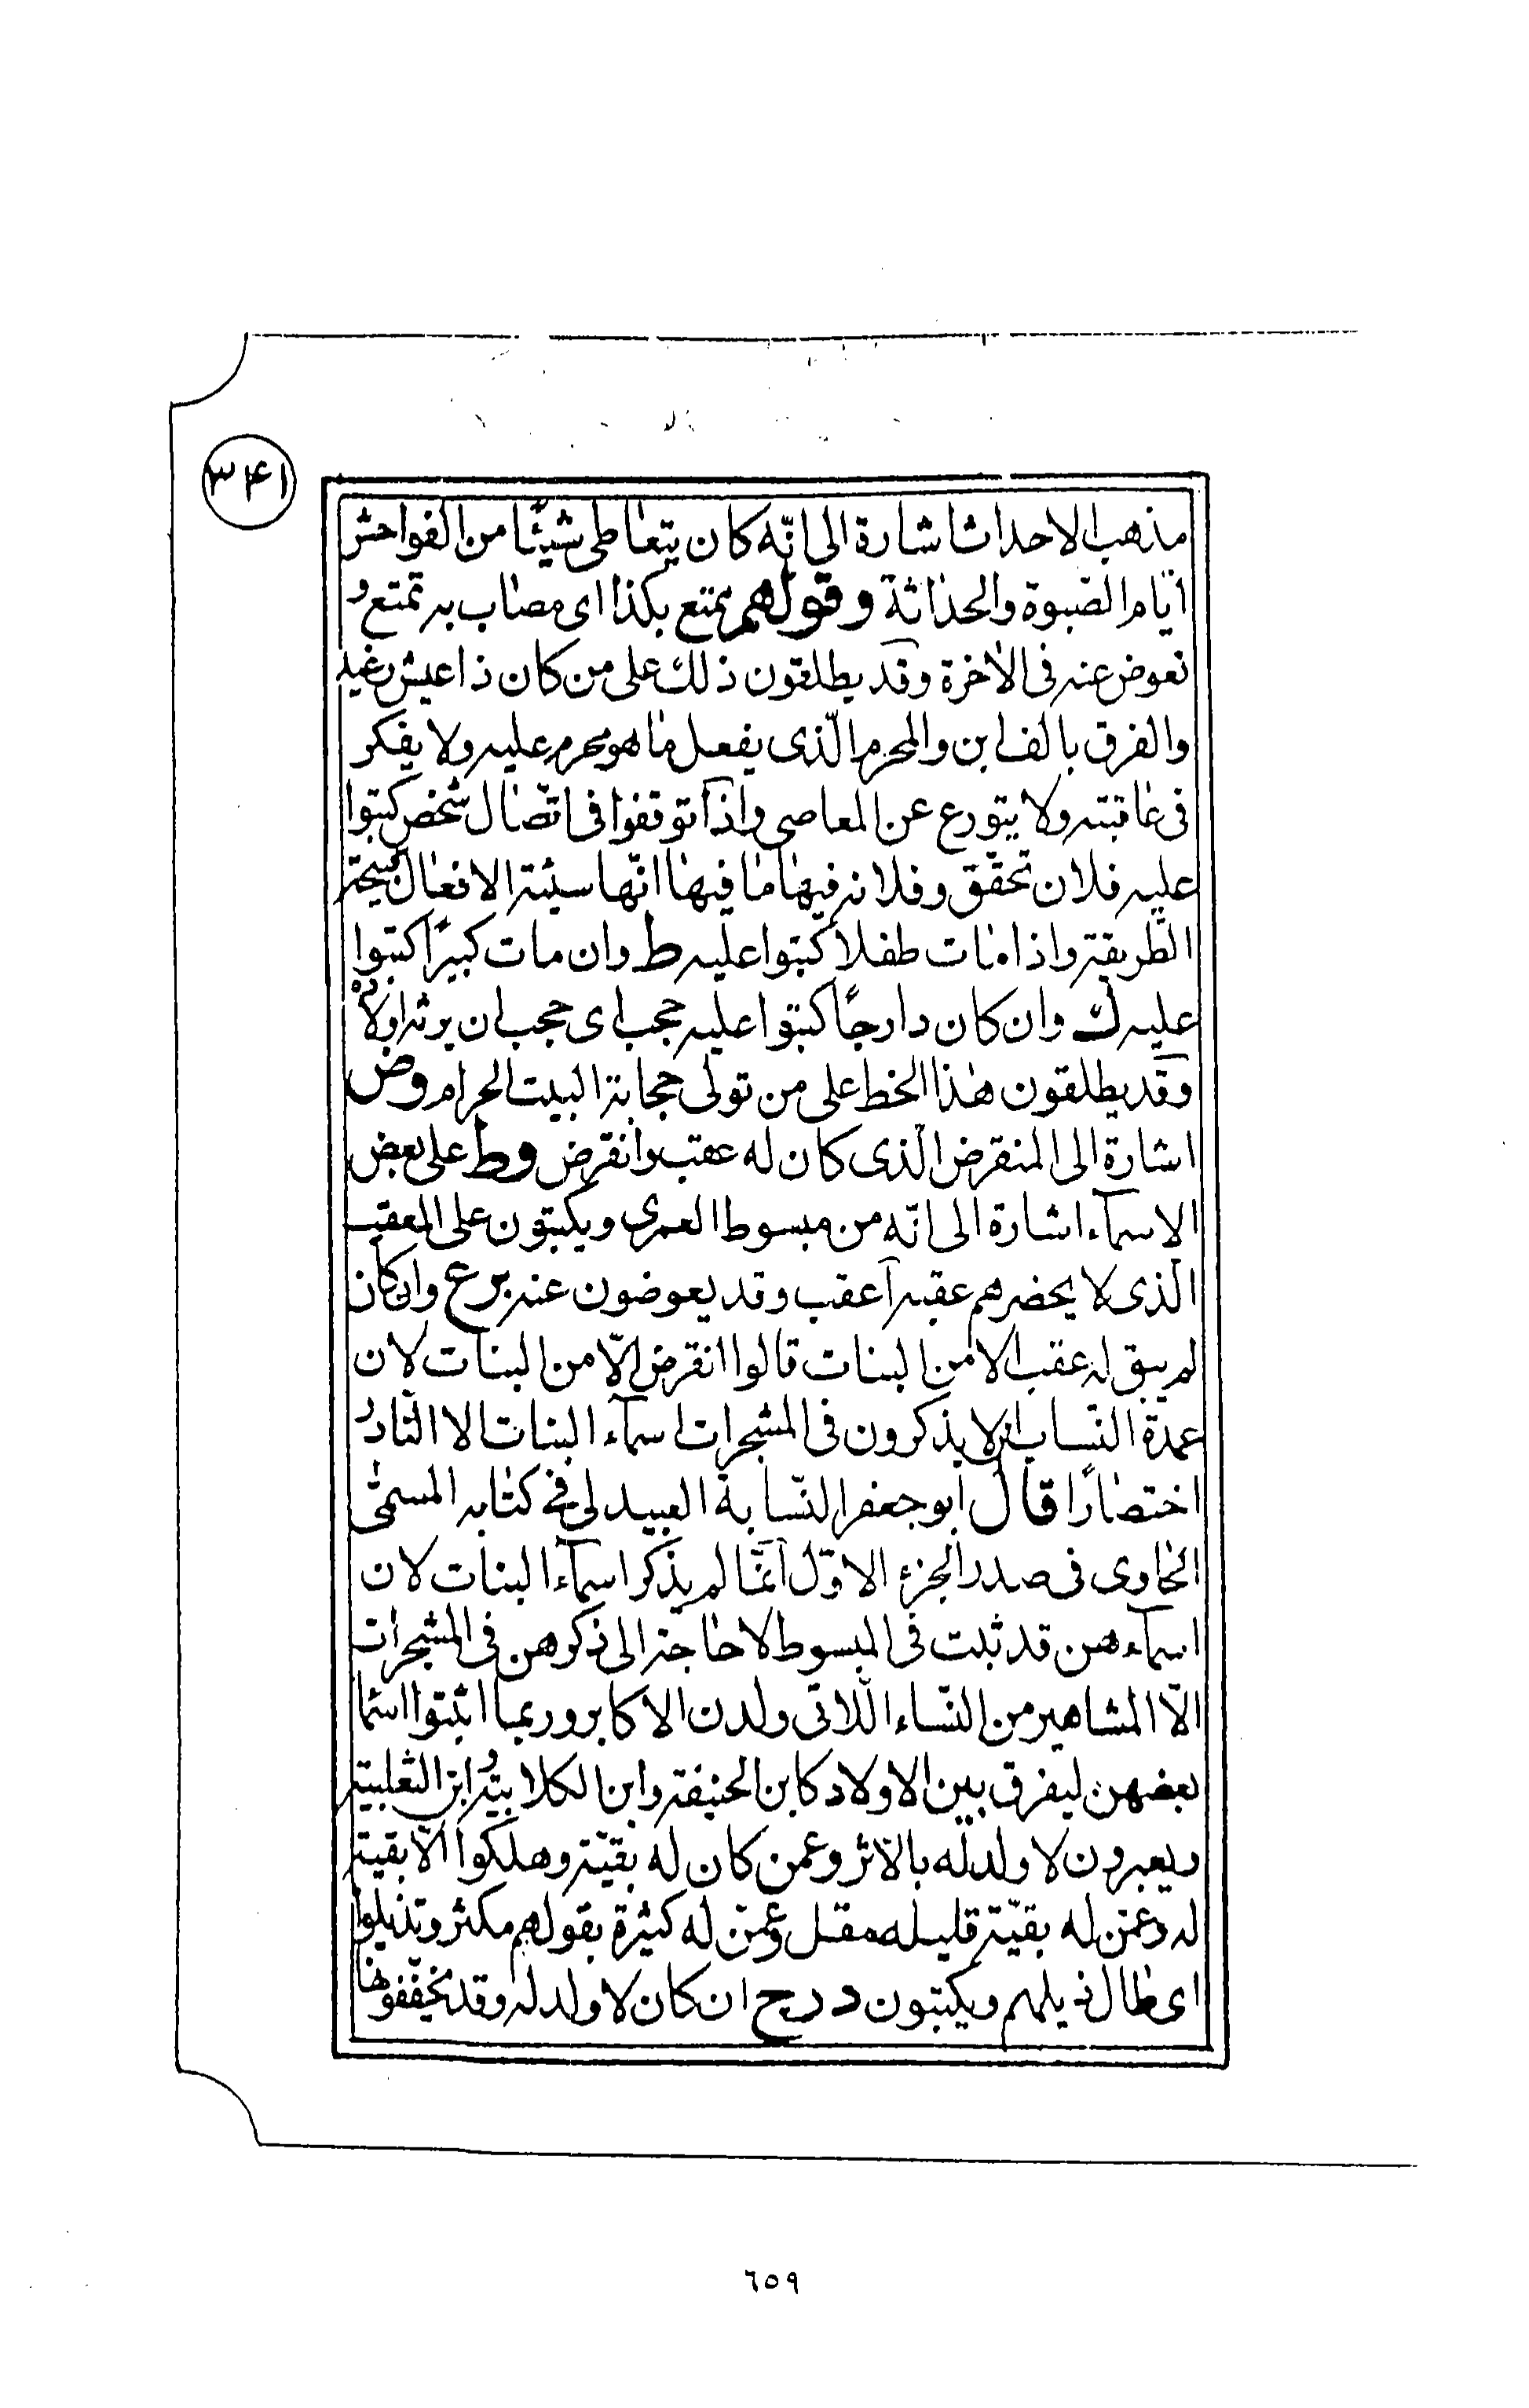 ٣٤١
مذهب الاحداث اشارة الى انّه كان يتعاطى شيئًا من الفواحش
ايّام الصّبوة والحداثة وقولهم يمتع بكذا اى مصاب به تمتع و
تعوض عنه فى الاخرة وقد يطلقون ذلك على من كان ذا عيش رغيد
والفرق بالف ابن والمحرم الّذى يفعل ما هو محرم عليه ولا يفكر
فى عاقبته ولا يتورع عن المعاصى واذا توقفوا فى اتّصال شخص كتبوا
عليه فلان تحقّق وفلانه فيها ما فيها انّها سيئة الافعال
الطّريقة واذا مات طفلا كتبوا عليه ط وان مات كبيرًا كتبوا
عليه ك وان كان دارجًا كتبوا عليه حجب اى حجب ان يرثه اولاده
وقد يطلقون هذا الخط على من تولى حجابة البيت الحرام وض
اشارة الى المنقرض الّذى كان له عقب وانقرض وط على بعض
الاسماء اشارة الى انّه من مبسوط العمرى ويكتبون على المعقب
الّذى لا يحضرهم عقبه اعقب وقد يعوضون عنه برع وان كان
لم يبق له عقب الا من البنات قالوا انقرض الّا من البنات لان
عمدة النّسابين لا يذكرون فى المشجرات اسماء البنات الا النّادر
اختصارًا قال ابو جعفر النّسابة العبيدلى فى كتابه المسمّى
الحاوى فى صدر الجزء الاوّل انّما لم يذكر اسماء البنات لان
اسماء هن قد ثبت فى المبسوط لا حاجة الى ذكرهن فى المشجرات
الّا المشاهير من النّساء اللّاتى ولدن الاكابر وربما اثبتوا اسما
بعضهن ليفرق بين الاولاد كابن الحنيفة وابن الكلابيّة وابن الثعلبية
ويعبرون لا ولد له بالاثر وعمن كان له بقيّة وهلكوا الّا بقية
له وعمّن له بقيّة قليله مقل وعمّن له كثيرة بقولهم مكثر وتذيلوا
اى طال ذيلهم ويكتبون د ر ج ان كان لا ولد له وقد يخفّفونها
٦٥٩